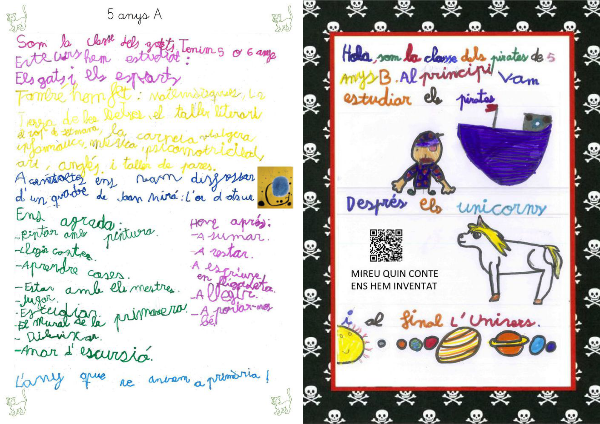 5 anys A
Som la classe dels gats. Tenim 5 o 6 anys
Enteuns hem estudiat:
Els gats i els esports
També hem fet: matemàtiques, la
el taller literari
el gos
la carrera
informàtica, música, psicomotricitat,
art, anglès i taller de jocs.
A carnestoltes ens vam disfressar
d'un quadre de Joan Miró: L'or d'atzur
Ens agrada:
-Pintar amb pintura.
-Llegir contes.
-Aprendre coses.
-Estar amb els mestres.
-Jugar.
-Estudiar.
El mural de la primavera
- Dibuixar.
-Anar d'escursió.
Hem aprés:
-A sumar.
-A restar.
A escriure
en lligadeta
-A llegir.
-A portar-nos
bé
L'any que ve anirem a primària!
Hola, som la classe dels pirates de 5
anys B. Al principi vam
estudiar els pirates
Després els unicorns
MIREU QUIN CONTE
ENS HEM INVENTAT
i al final L'Univers.